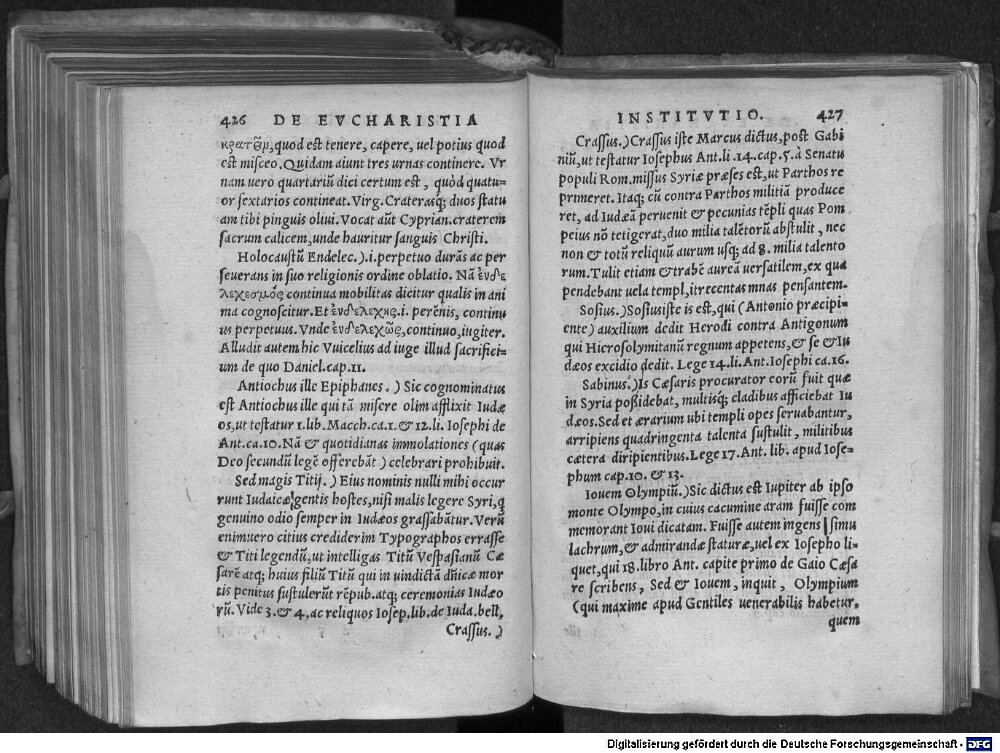 426 DE EVCHARISTIA
κρατῶμ, quod est tenere, capere, uel potius quod
est misceo. Quidam aiunt tres urnas continere. Vr
nam uero quartariũ dici certum est, quòd quatu-
or sextarios contineat. Virg. Craterasq́; duos statu
am tibi pinguis oliui. Vocat aũt Cyprian. craterem
sacrum calicem, unde hauritur sanguis Christi.
Holocaustũ Endelec.).i. perpetuo durãs ac per
seuerans in suo religionis ordine oblatio. Nã ἐνδε
λεχεσμός continua mobilitas dicitur qualis in ani
ma cognoscitur. Et ἐνδελεχης.i. perẽnis, continu
us perpetuus. Vnde ἐνδελεχῶς, continuo, iugiter.
Alludit autem hic Vuicelius ad iuge illud sacrifici-
um de quo Daniel. cap. 11.
Antiochus ille Epiphanes.) Sic cognominatus
est Antiochus ille qui tã misere olim afflixit Iudæ
os, ut testatur 1. lib. Macch. ca. 1. & 12. li. Iosephi de
Ant. ca. 10. Nã & quotidianas immolationes (quas
Deo secundũ legẽ offerebãt) celebrari prohibuit.
Sed magis Titij.) Eius nominis nulli mihi occur
runt Iudaicæ gentis hostes, nisi malis legere Syri, q
genuino odio semper in Iudæos grassabãtur. Verũ
enimuero citius crediderim Typographos errasse
& Titi legendũ, ut intelligas Titũ Vespasianũ Cæ
sarẽ atq; huius filiũ Titũ qui in uindictã dñicæ mor
tis penitus sustulerũt rẽpub. atq; ceremonias Iudæo
rũ. Vide 3. & 4, ac reliquos Iosep. lib. de Iuda. bell,
Crassus.)
INSTITVTIO. 427
Crassus.) Crassus iste Marcus dictus, post Gabi
niũ, ut testatur Iosephus Ant. li. 14. cap. 5. à Senatu
populi Rom. missus Syriæ præses est, ut Parthos re
primeret. Itaq; cũ contra Parthos militiã produce
ret, ad Iudæã peruenit & pecunias tẽpli quas Pom
peius nõ tetigerat, duo milia talẽtorũ abstulit, nec
non & totũ reliquũ aurum usq; ad 8. milia talento
rum. Tulit etiam & trabẽ aureã uersatilem, ex qua
pendebant uela templ, itrecentas mnas pensantem.
Sosius.) Sosiusiste is est, qui (Antonio præcipi-
ente) auxilium dedit Herodi contra Antigonum
qui Hierosolymitanũ regnum appetens, & se & Iu
dæos excidio dedit. Lege 14. li. Ant. Iosephi ca. 16.
Sabinus.) Is Cæsaris procurator eorũ fuit quæ
in Syria poßidebat, multisq́; cladibus afficiebat Iu
dæos. Sed et ærarium ubi templi opes seruabantur,
arripiens quadringenta talenta sustulit, militibus
cætera diripientibus. Lege 17. Ant. lib. apud Iose-
phum cap. 10. & 13.
Iouem Olympiũ.) Sic dictus est Iupiter ab ipso
monte Olympo, in cuius cacumine aram fuisse com
memorant Ioui dicatam. Fuisse autem ingens simu
lachrum, & admirandæ staturæ, uel ex Iosepho li-
quet, qui 18. libro Ant. capite primo de Gaio Cæsa
re scribens, Sed & Iouem, inquit, Olympium
(qui maxime apud Gentiles uenerabilis habetur,
quem
Digitalisierung gefördert durch die Deutsche Forschungsgemeinschaft - DFG